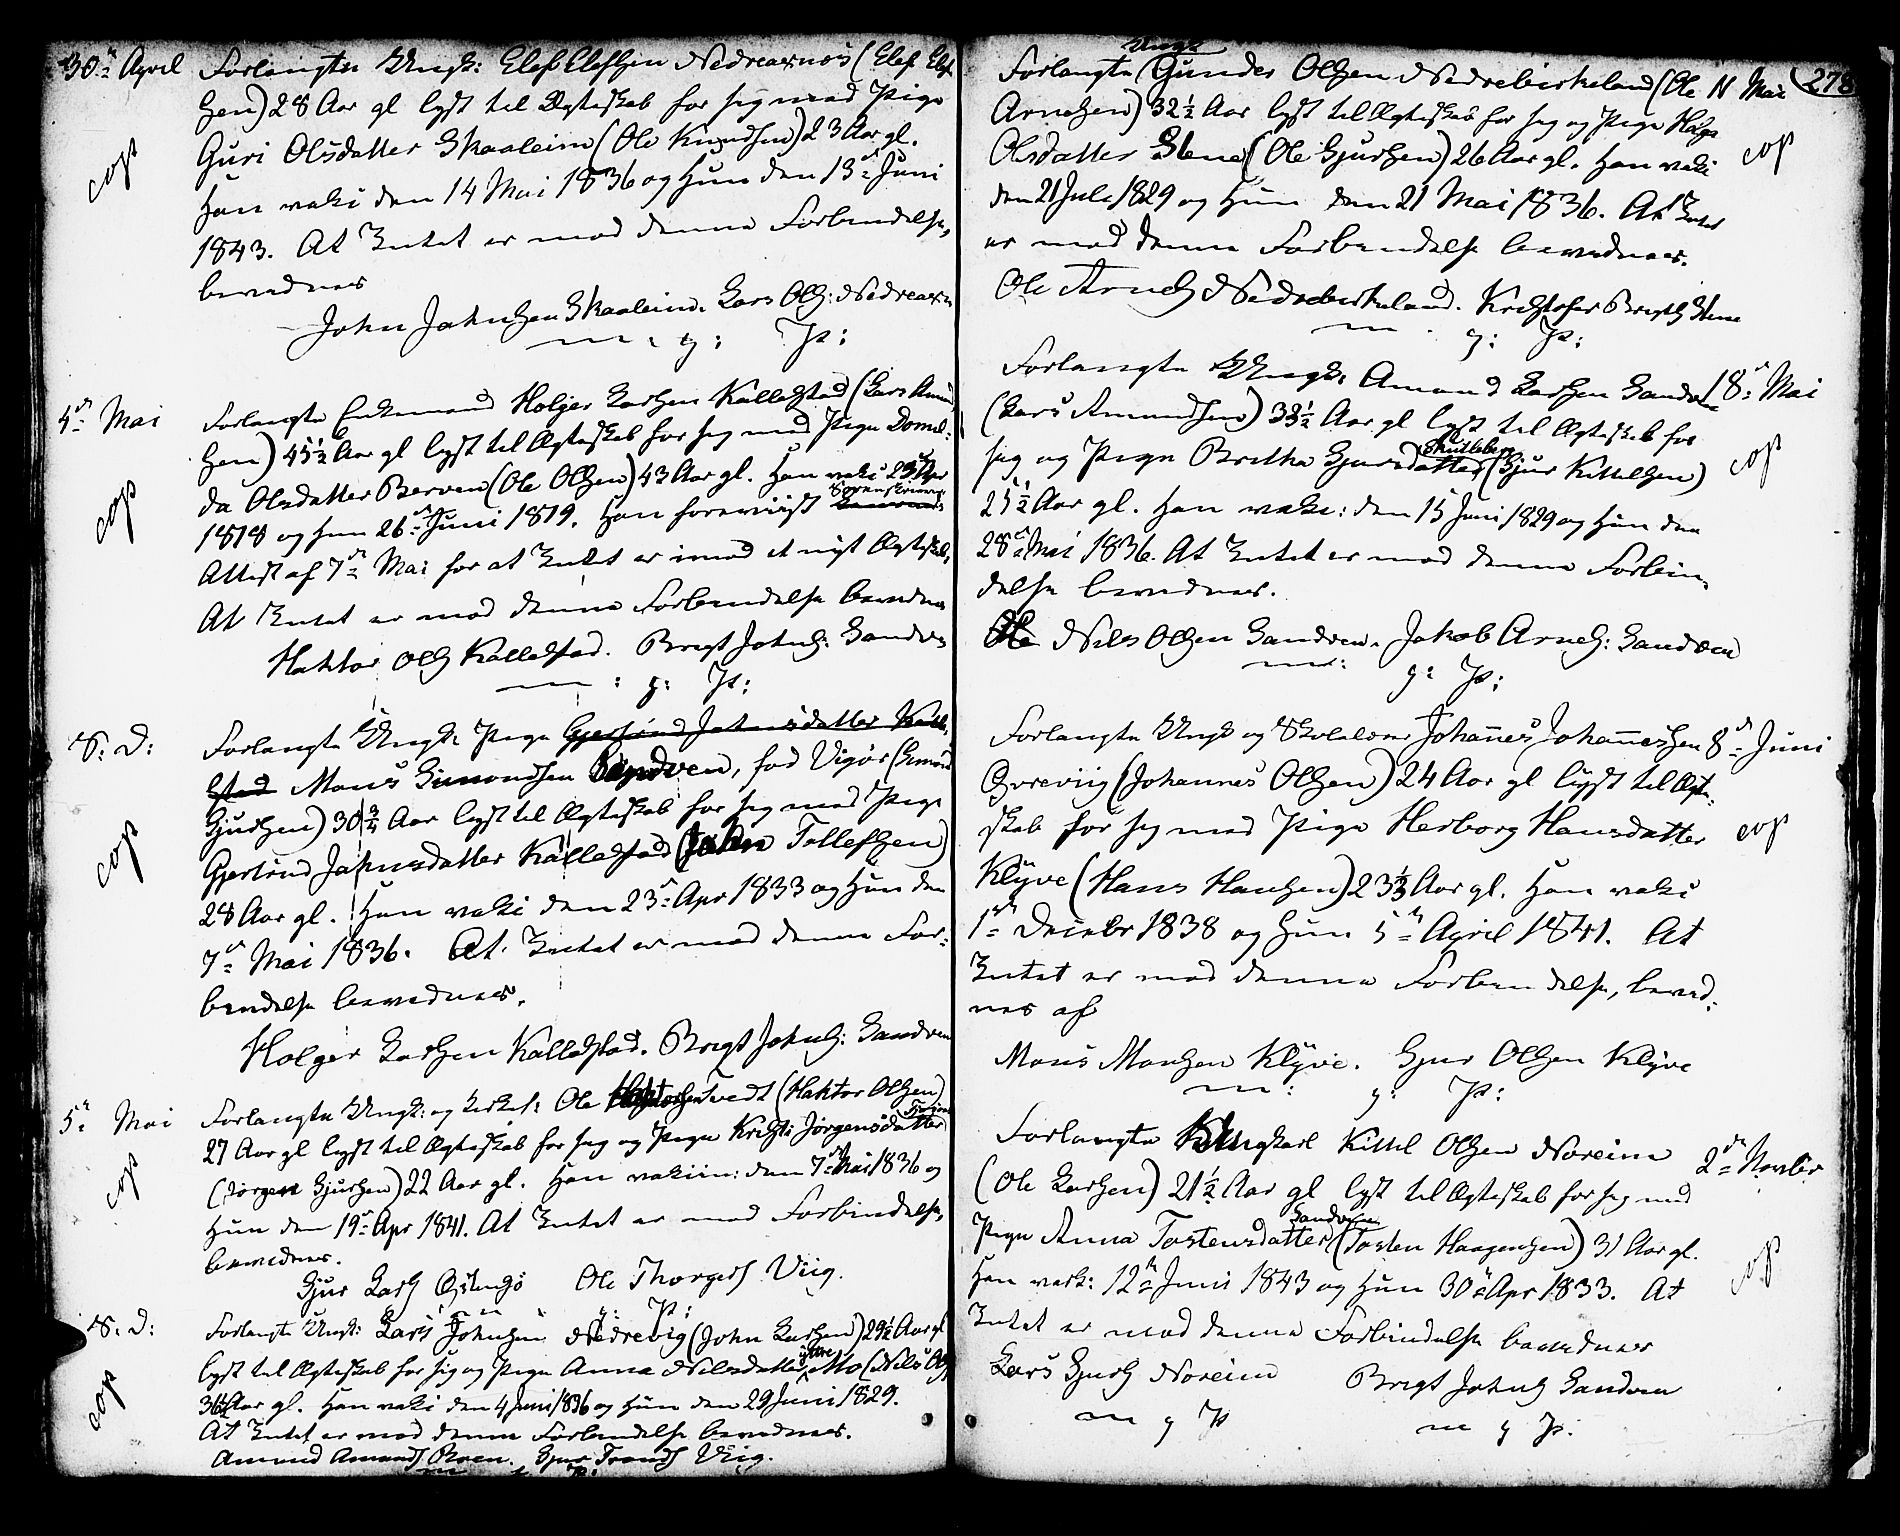 30te April
Forlangte Ungk: Elef Elefsen Nedreaxnes (Elef Elef-
sen) 28 Aar gl lyst til Ægteskab for sig med Pige
Guri Olsdatter Skaaleim (Ole Knudsen) 23 Aar gl.
Han vaks den 14 Mai 1836 og Hun den 13de Juni
1843. At Intet er mod denne Forbindelse,
bevidnes
John Johnsen Skaaleim. Lars Ols: Nedreaxn
m. g: P:
cop
4de Mai
Forlangte Enkemand Holger Larsen Kallestad (Lars Amund
sen) 45½ Aar gl lyst til Ægteskab for sig med Pige Domil-
da Olsdatter Berven (Ole Olsen) 43 Aar gl. Han vaks 23 Apr
1818 og Hun 26de Juni 1819. Han foreviist Sorenskriver
Attest af 7de Mai for at Intet er imod et nyt Ægteskab,
At Intet er mod denne Forbindelse bevidnes
Haktor Ols Kallestad. Brigt Johns: Sandven
m: g: P:
cop
S. D:
Forlangte Ungk: Pige Gjertrud Johnsdatter Kalle-
stad Mons Simonsen Sandven, fød Vigør (Simon
Gjursen) 30¾ Aar lyst til Ægteskab for sig med Pige
Gjertrud Johnsdatter Kallestad (John Tollefsen)
28 Aar gl. Han vaks den 23de Apr 1833 og Hun den
7de Mai 1836. At Intet er mod denne For-
bindelse bevidnes.
Holger Larsen Kallestad. Brigt Johns: Sandven
cop
5te Mai
Forlangte Ungk: og Ole Haktorsen Tvedt (Haktor Olsen)
27 Aar gl lyst til Ægteskab for sig og Pige Kristi Jørgensdatter
(Jørgen Gjursen) 22 Aar gl. Han vaksin: den 7de Mai 1836 og
Hun den 19de Apr 1841. At Intet er mod Forbindelse,
bevidnes.
Gjur Lars Østensø Ole Thorgers Viig.
m g: P:
cop
S. D:
Forlangte Ungk: Lars Johnsen Nedrevig (John Larsen) 29½ Aar gl
lyst til Ægteskab for sig og Pige Anna Nilsdatter ytre Mo (Nils Ols
36 Aar gl. Han vaks den 4 Juni 1836 og Hun den 29 Juni 1829.
At Intet er mod denne Forbindelse bevidnes.
Amund Amunds Roen. Gjur Tronds Viig.
cop
278
Ungk
Forlangte Gunder Olsen Nedrebirkeland (Ole
11 Mai
Arnesen) 32½ Aar lyst til Ægteskab for sig og Pige Helga
Olsdatter Stene (Ole Gjursen) 26 Aar gl. Han vaks
den 21 Juli 1829 og Hun den 21 Mai 1836. At Intet
er mod denne Forbindelse bevidnes.
Ole Arnes Nedrebirkeland. Kristofer Brigts Stene
m g: P:
cop
Forlangte Ungk: Amund Larsen Sandven
18de Mai
(Lars Amundsen) 33½ Aar gl lyst til Ægteskab for
sig og Pige Britha Gjursdatter Skutleberg (Gjur Kittelsen)
25½ Aar gl. Han vaks: den 15 Juni 1829 og Hun den
28de Mai 1836. At Intet er mod denne Forbin-
delse bevidnes.
Ole Nils Olsen Sandven. Jakob Arnes: Sandven
m: g: P:
cop
Forlangte Ungk og Skolelærer Johannes Johannessen
8de Juni
Øvreviig (Johannes Olsen) 24 Aar gl lyst til Ægte-
skab for sig med Pige Herborg Hansdatter
Klyve (Hans Hansen) 23⅓ Aar gl. Han vaks
1ste Decbr 1838 og Hun 5te April 1841. At
Intet er mod denne Forbindelse, bevid-
nes af
Mons Monsen Klyve. Gjur Olsen Klyve
m: g: P:
cop
Forlangte Ungkarl Kittel Olsen Noreim
2den Novbr
(Ole Larsen) 21½ Aar gl lyst til Ægteskab for sig med
Pige Anna Tostensdatter Sandven (Tosten Haagensen) 31 Aar gl.
Han vaks: 12te Juni 1843 og Hun 30te Apr 1833. At
Intet er mod denne Forbindelse bevidnes
Lars Gjurs Noreim Brigt Johns Sandven
m g P m g P:
cop